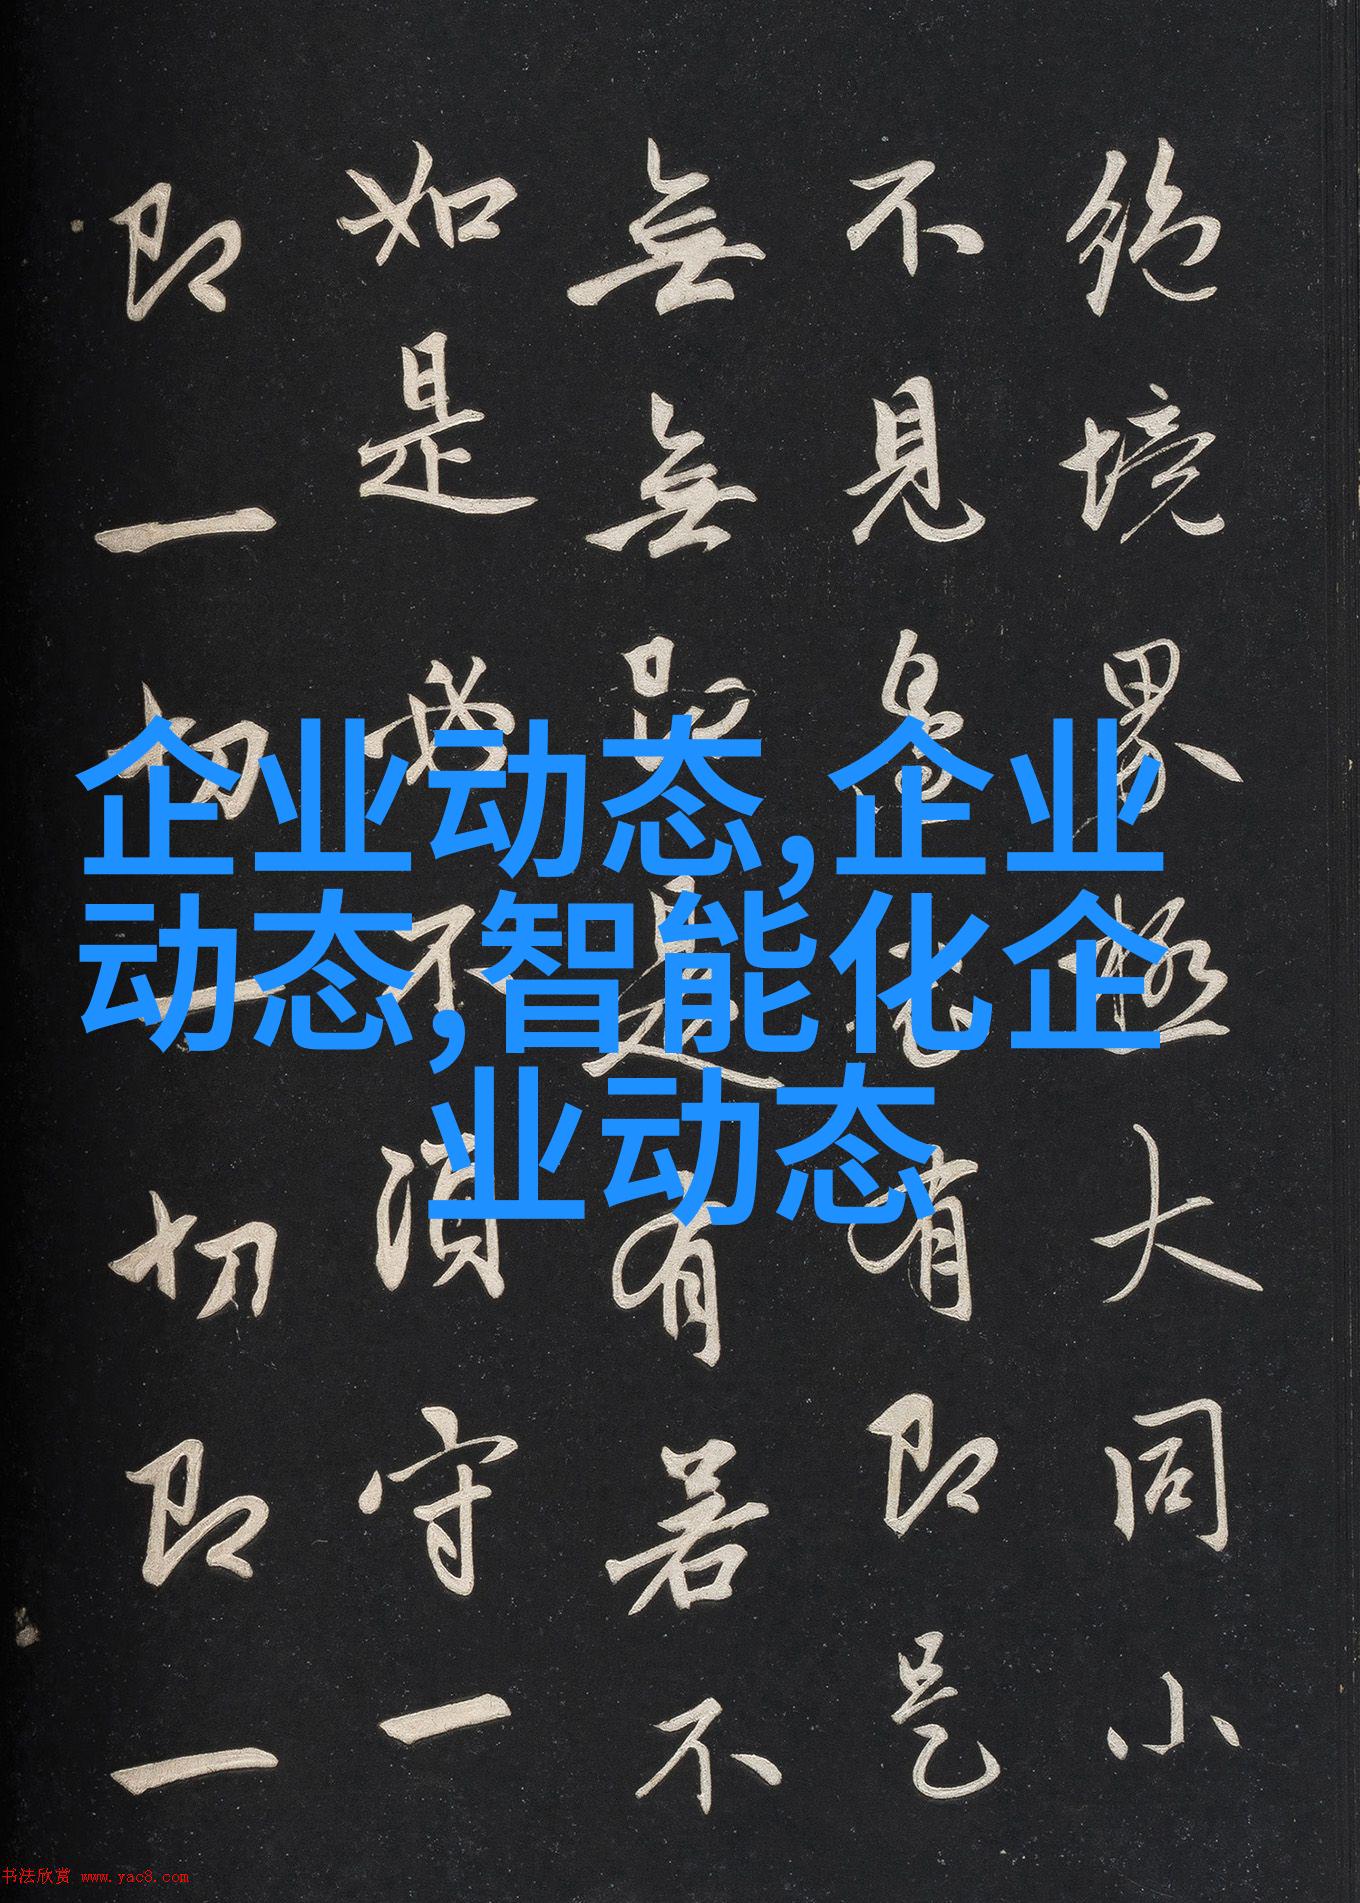 絶境界極大同小
不見邊表有即是
無無即是有若不
如是必不須守一
即一切一切即一
企业动态,企业
动态,智能化企
业动态
书法欣赏 www.yac8.com